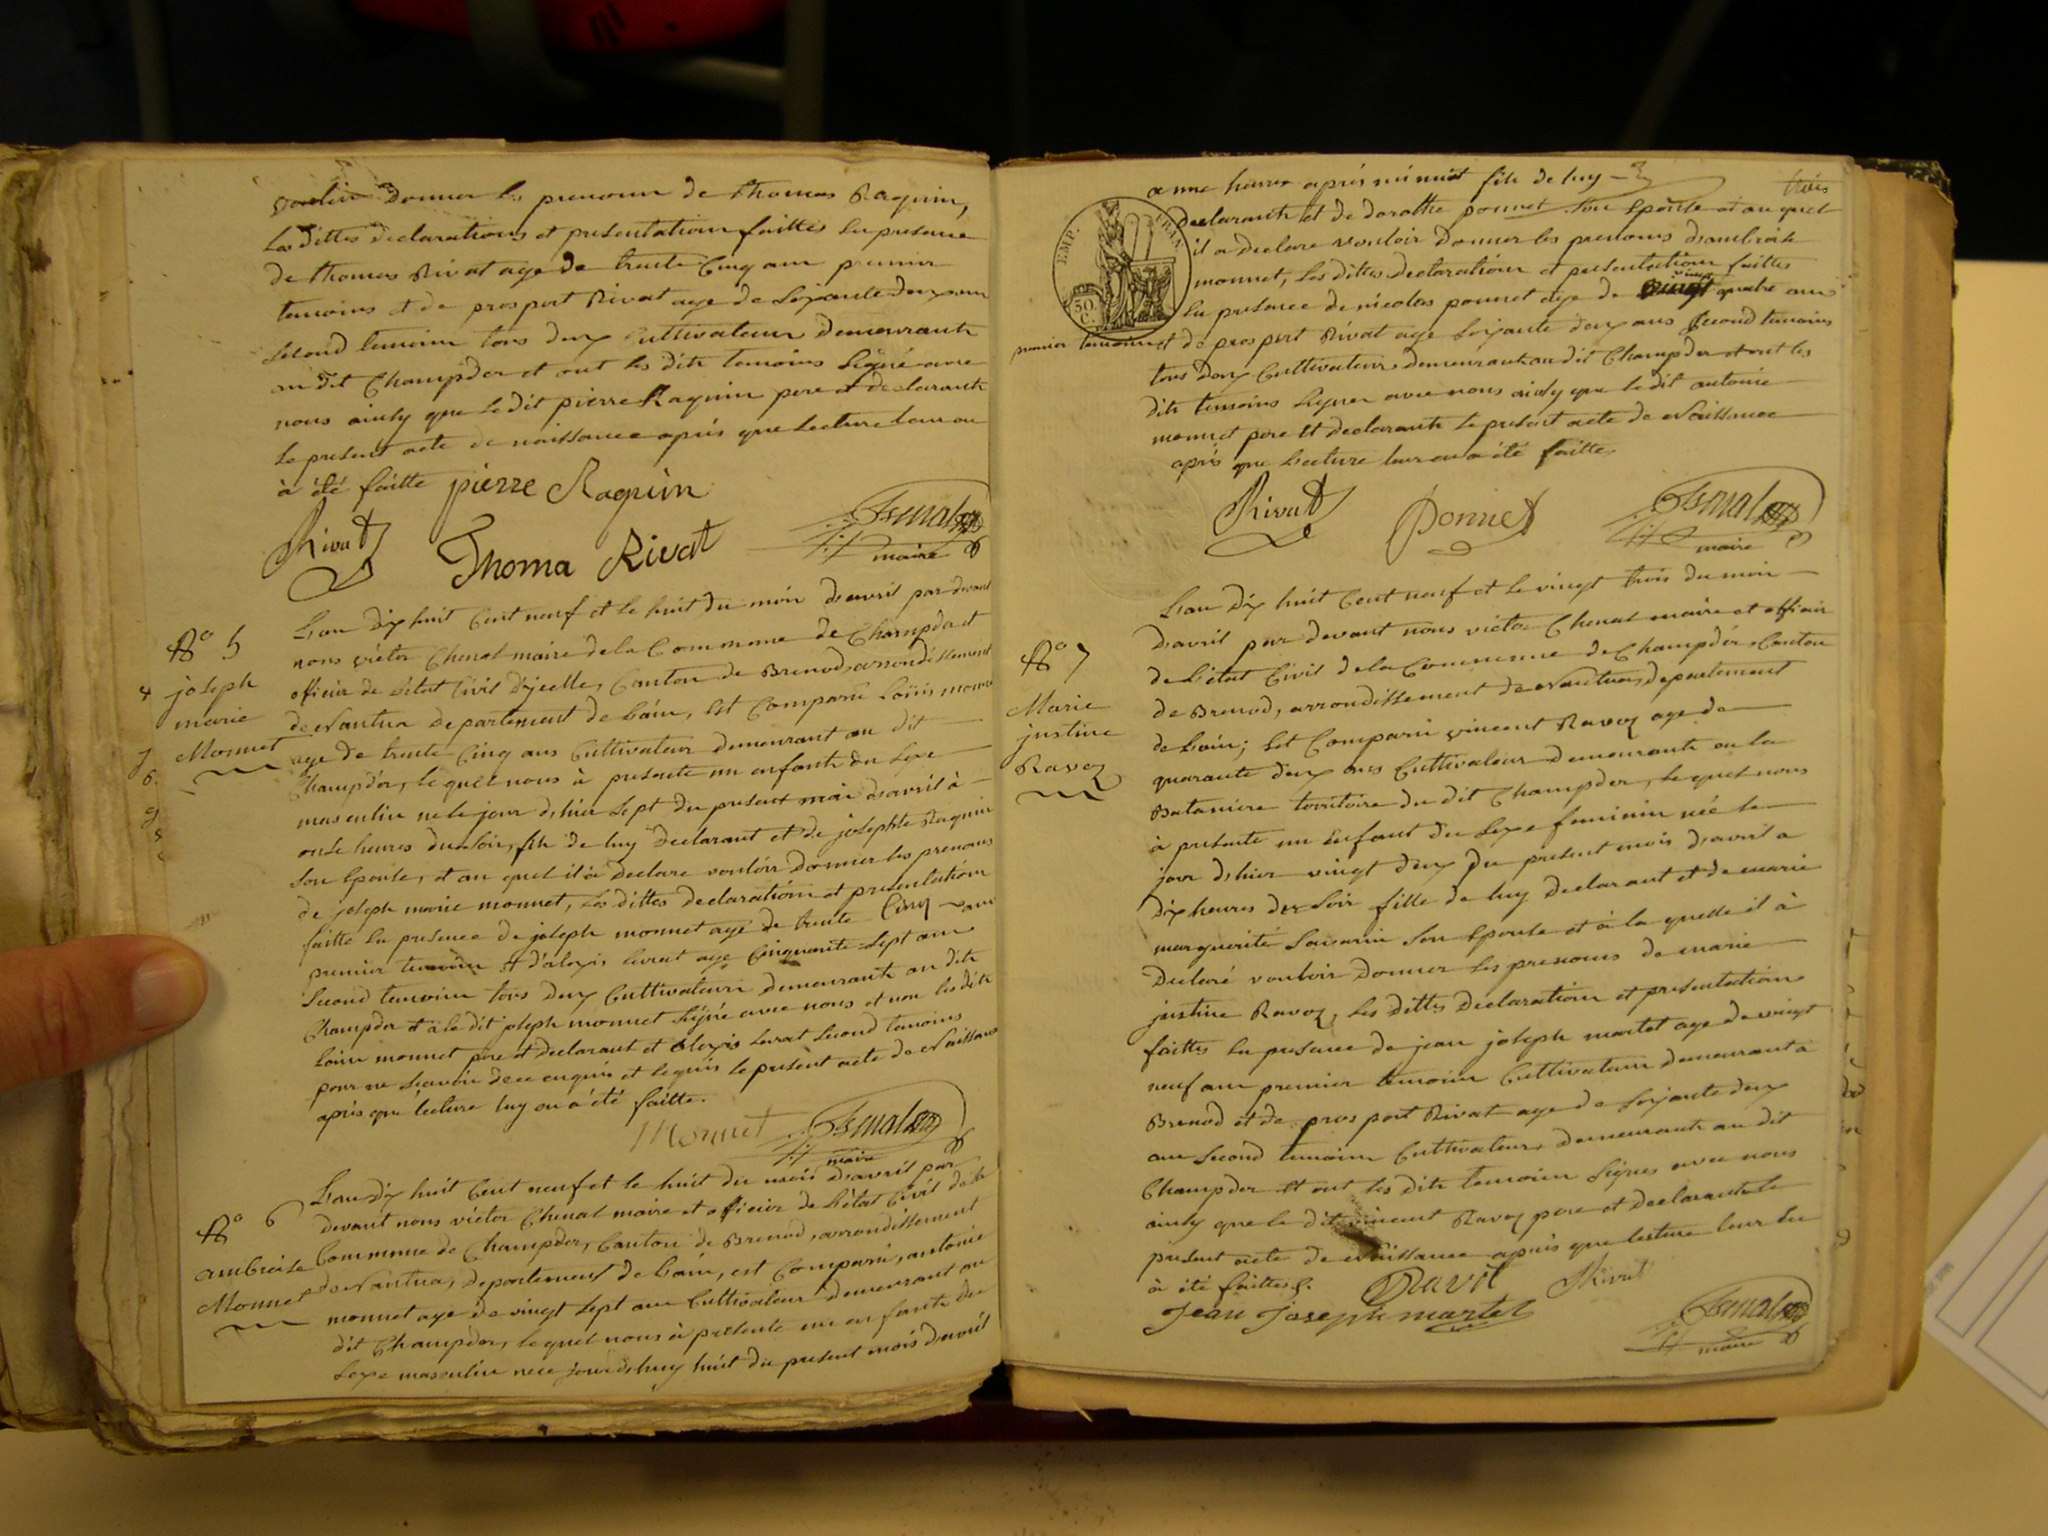 vouloir donner les prenoms de thomas Raquin,
les dittes declarations et presentation faittes en presence
de thomas Rivat age de trente Cinq ans premier
temoins et de prosport Rivat age de soixante deux ans
second temoin tous deux Cultivateurs demeurants
au dit Champdor et ont les dits temoins signé avec
nous ainsy que le dit pierre Raquin pere et declarant
le present acte de naissance après que lecture leur en
à été faitte pierre Raquin
Rivat Thoma Rivat maire
N° 5
joseph
marie
Monnet
L'an dix huit Cent neuf et le huit du mois d'avril par devant
nous victor Chenal maire de la Commune de Champdor et
officier de l'état Civil d'ycelle, Canton de Brenod, arrondissement
de Nantua departement de l'ain, est Comparu Loüis monnet
age de trente Cinq ans Cultivateur demeurant au dit
Champdor, le quel nous à presenté un enfant du sexe
masculin ne le jour d'hier sept du present mois d'avril à
onse heures du soir, fils de luy declarant et de josephte Raquin
son épouse, et au quel il à declare vouloir donner les prenoms
de joseph marie monnet, les dittes declaration et presentation
faitte en presence de joseph monnet age de trente Cinq ans
premier temoin et d'alexis livrat age Cinquante sept ans
second temoin tous deux Cultivateurs demeurants au dit
Champdor et à le dit joseph monnet signé avec nous et non les dits
Loüis monnet pere et declarant et alexis Livrat second temoins
pour ne sçavoir de ce enquis et requis le present acte de Naissance
après que lecture luy en à été faitte.
Monnet maire
N° 6
ambroise
Monnet
L'an dix huit Cent neuf et le huit du mois d'avril par
devant nous victor Chenal maire et officier de l'état Civil de la
Commune de Champdor, Canton de Brenod, arrondissement
de Nantua, departement de l'ain, est Comparu, antoine
monnet age de vingt sept ans Cultivateur demeurant au
dit Champdor, le quel nous à presenté un enfants du
sexe masculin ne ce jour d'huy huit du present mois d'avril
trois
a une heure après minuit fils de luy
declarants et de dorothe ponnet son épouse et au quel
il a declare vouloir donner les prenoms d'ambroise
monnet, les dittes declaration et presentation faittes
en presence de nicolas ponnet age de vingt quatre ans
premier temoin et de prosport Rivat age soixante deux ans second temoins
tous deux Cultivateurs demeurants au dit Champdor et ont les
dits temoins signer avec nous ainsy que le dit antoine
monnet pere et declarants le present acte de Naissance
après que lecture leur en à été faitte
EMP. FRAN.
50
C.
Rivat Ponnet maire
N° 7
Marie
justine
Ravoz
L'an dix huit Cent neuf et le vingt trois du mois
d'avril par devant nous victor Chenal maire et officier
de l'état Civil de la Commune de Champdor, Canton
de Brenod, arrondissement de Nantua, departement
de l'ain; est Comparu vincent Ravoz age de
quarante deux ans Cultivateur demeurants en la
Bataniere territoire du dit Champdor, le quel nous
à presente un enfant du sexe feminin née le
jour d'hier vingt deux du present mois d'avril a
dix heures du soir fille de luy declarant et de marie
marguerite Savarin son épouse et à la quelle il à
declaré vouloir donner les prenoms de marie
justine Ravoz, les dittes declaration et presentation
faittes en presence de jean joseph martet age de vingt
neuf ans premier temoin Cultivateur demeurant à
Brenod et de prosport Rivat age de soixante deux
ans second temoin Cultivateur, demeurants au dit
Champdor et ont les dits temoins signés avec nous
ainsy que le dit vincent Ravoz pere et declarants le
present acte de Naissance après que lecture leur en
à été faittes. Ravoz Rivat
Jean Joseph martet
maire